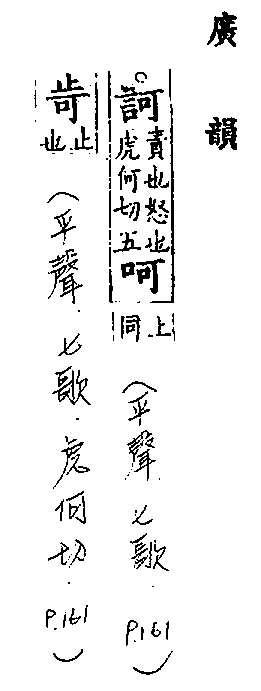 廣韻
訶責也怒也虎何切五呵上同(平聲.七歌.P.161)
止也(平聲.七歌.虎何切.P.161)